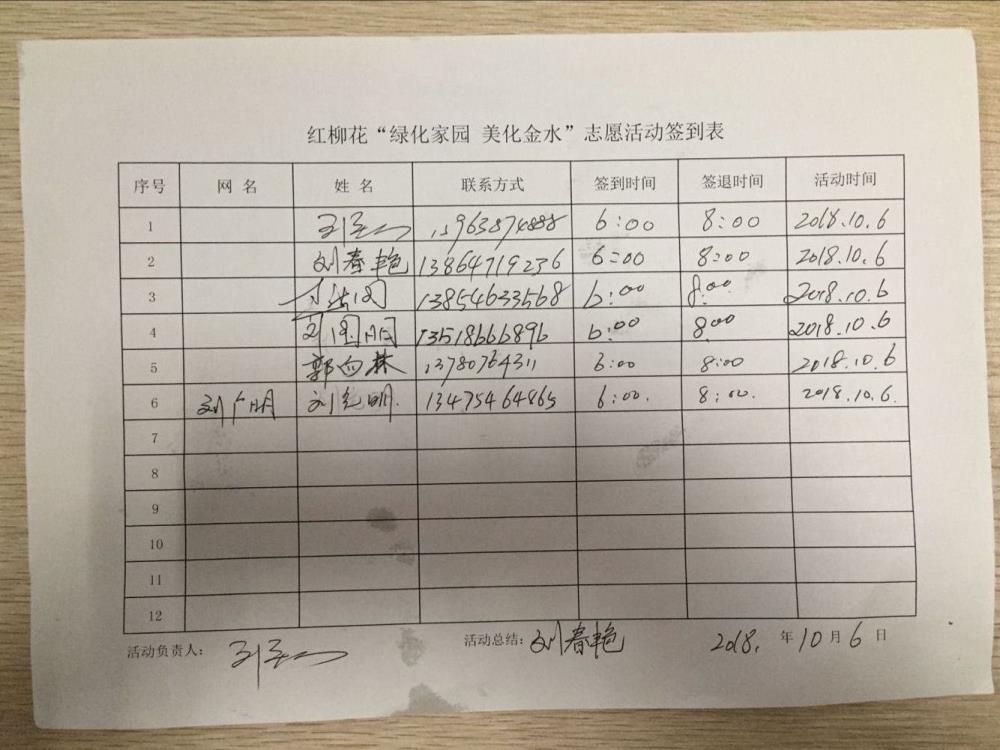 红柳花“绿化家园 美化金水”志愿活动签到表
序号 网 名 姓 名 联系方式 签到时间 签退时间 活动时间
1 13963874888 6:00 8:00 2018.10.6
2 刘春艳 13864719236 6:00 8:00 2018.10.6
3 13854633568 6:00 8:00 2018.10.6
4 刘国明 13518666896 6:00 8:00 2018.10.6
5 郭向林 13780764311 6:00 8:00 2018.10.6
6 刘广明 刘 明. 13475464865 6:00. 8:00. 2018.10.6.
7
8
9
10
11
12
活动负责人: 活动总结: 刘春艳 2018. 年 10 月 6 日